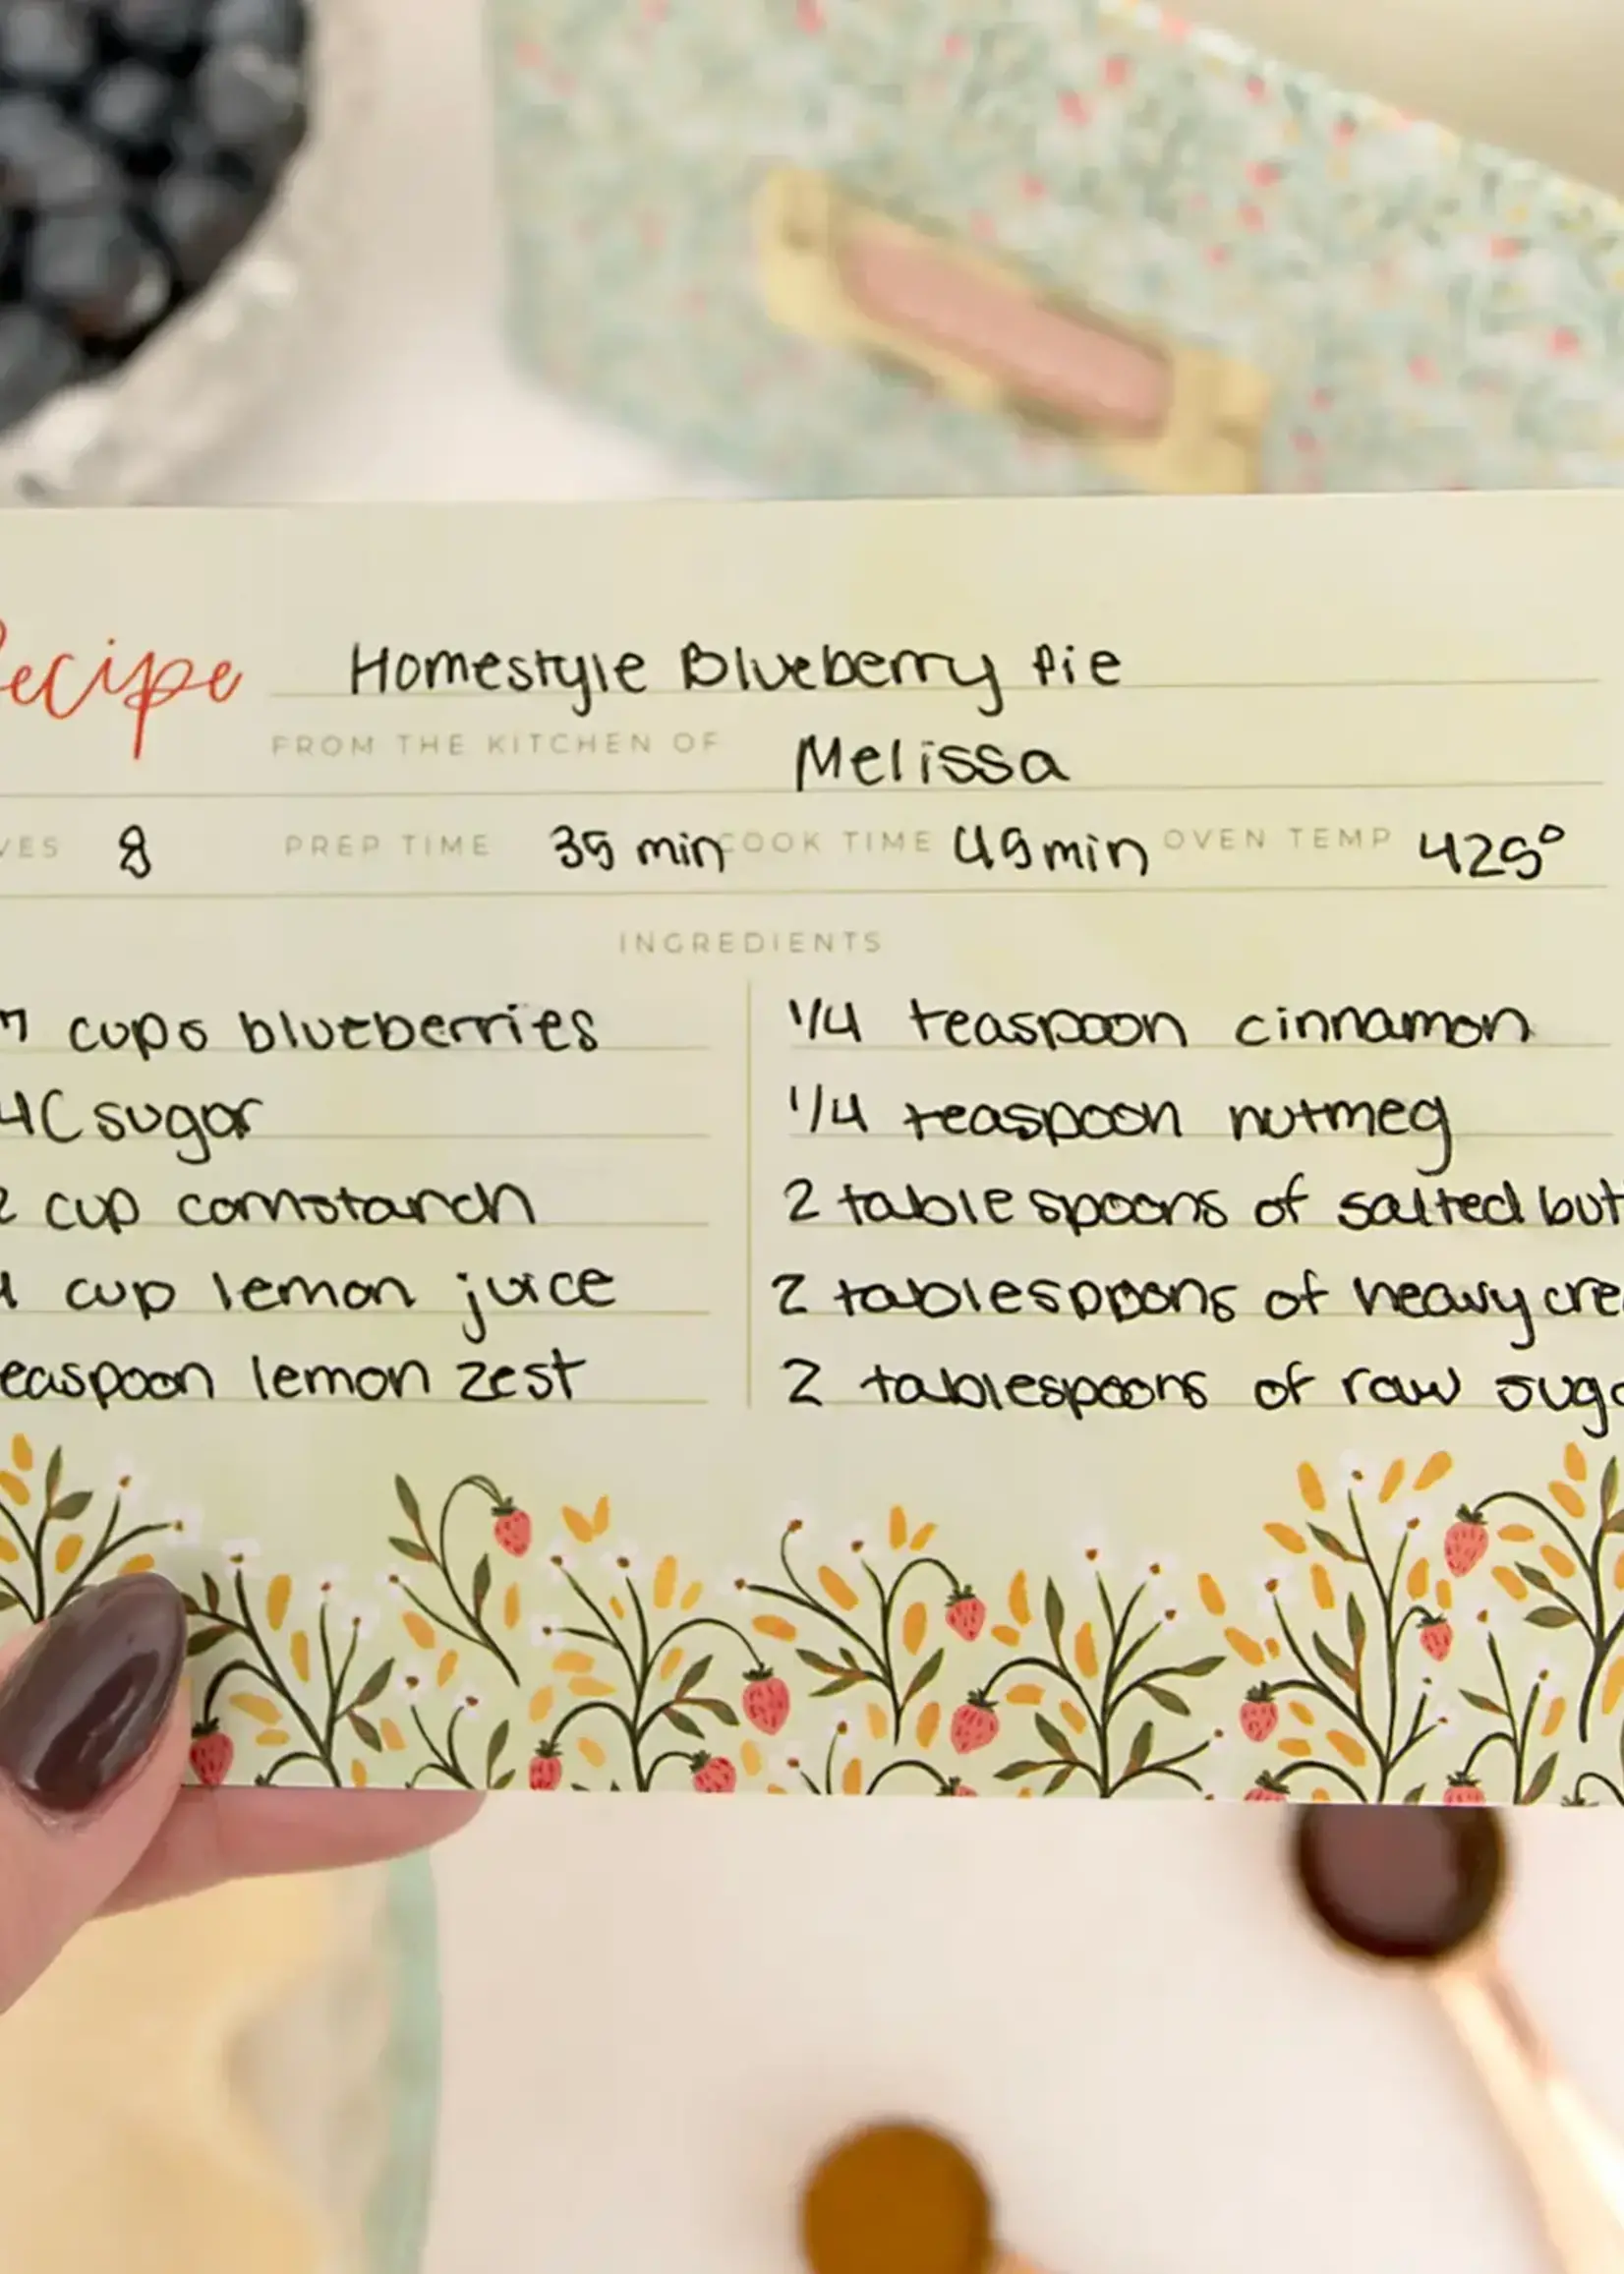 ecipe Homestyle Blueberry Pie
FROM THE KITCHEN OF Melissa
VES 8 PREP TIME 35 min COOK TIME 45 min OVEN TEMP 425°
INGREDIENTS
7 cups blueberries
4C sugar
2 cup cornstarch
4 cup lemon juice
easpoon lemon zest
1/4 teaspoon cinnamon
1/4 teaspoon nutmeg
2 tablespoons of salted but
2 tablespoons of heavy cre
2 tablespoons of raw suga